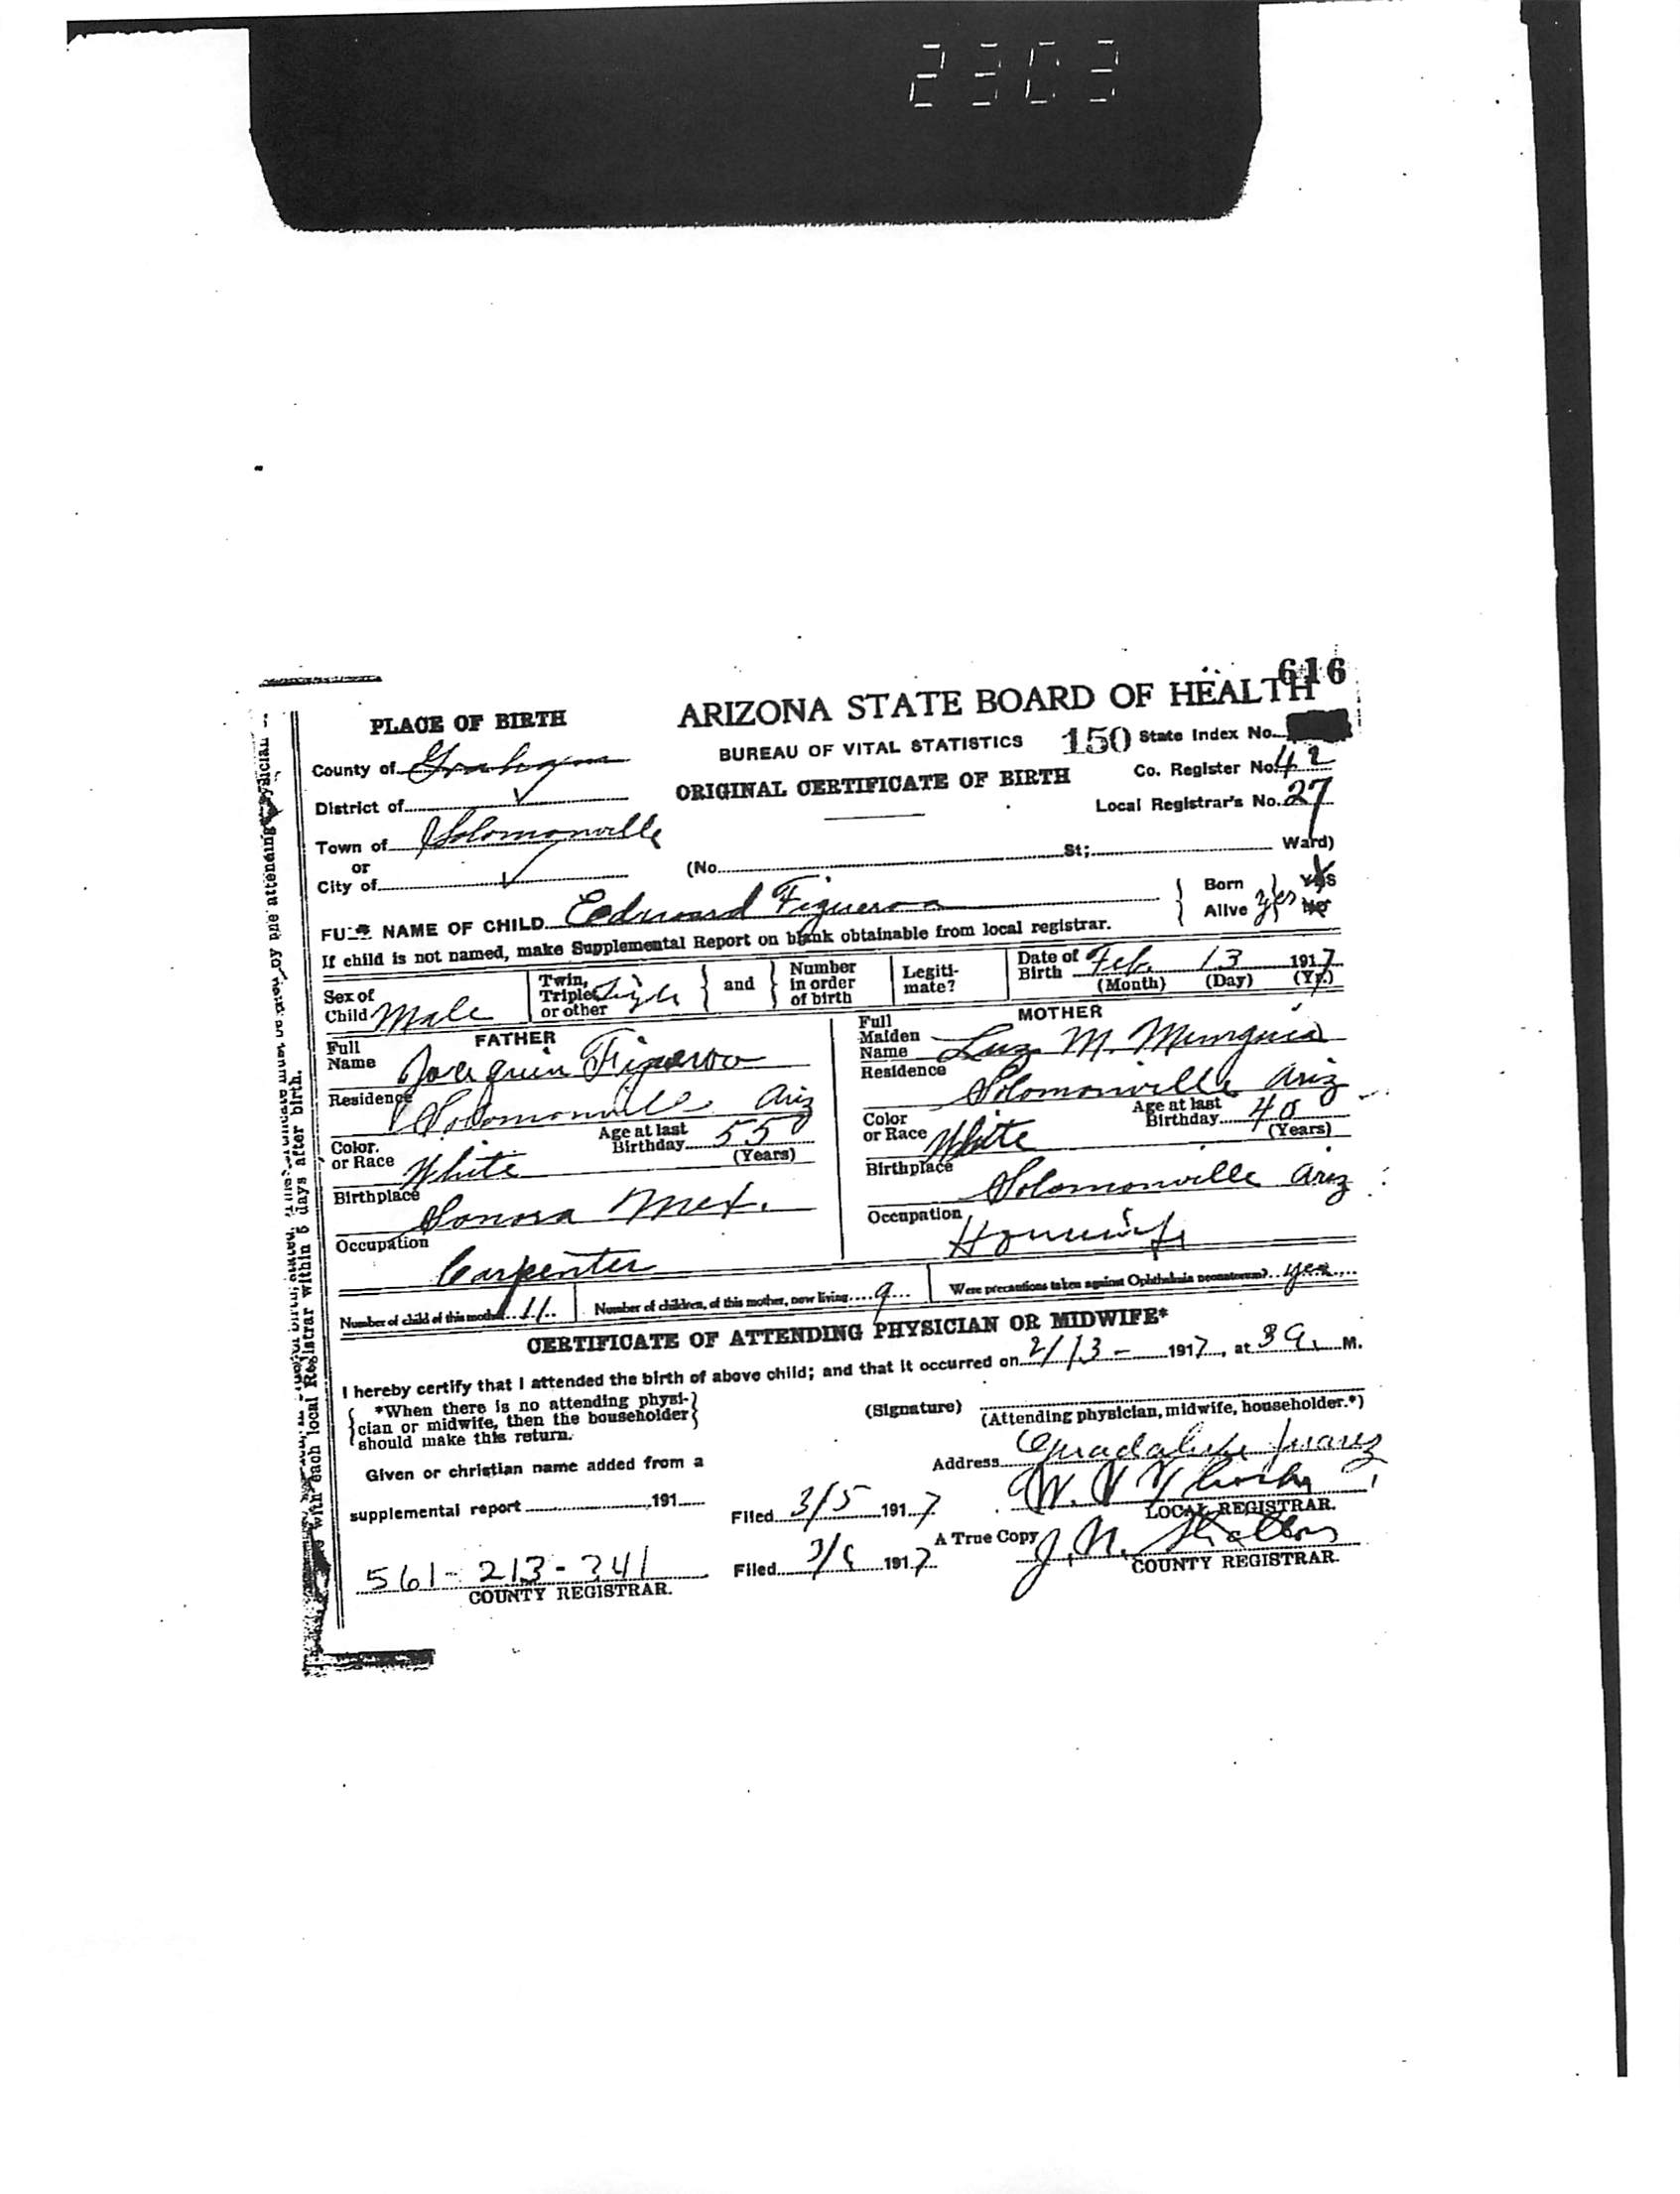 2303
616
PLACE OF BIRTH
ARIZONA STATE BOARD OF HEALTH
County of Graham
BUREAU OF VITAL STATISTICS 150 State Index No.
District of
ORIGINAL CERTIFICATE OF BIRTH
Co. Register No. 42
Local Registrar's No. 27
Town of Solomonville
or
City of
(No. St; Ward)
FULL NAME OF CHILD Edward Figueroa
Born Alive yes YES NO
If child is not named, make Supplemental Report on blank obtainable from local registrar.
Sex of Child Male
Twin, Triplet or other Single
and
Number in order of birth
Legiti-mate?
Date of Birth Feb. 13 1917
(Month) (Day) (Yr.)
FATHER
Full Name Joaquin Figueroa
Residence Solomonville Ariz
Color or Race White
Age at last Birthday 55
(Years)
Birthplace Sonora Mex.
Occupation Carpenter
MOTHER
Full Maiden Name Luz M. Munguia
Residence Solomonville Ariz
Color or Race White
Age at last Birthday 40
(Years)
Birthplace Solomonville Ariz
Occupation Housewife
Number of child of this mother 11
Number of children, of this mother, now living 9
Were precautions taken against Ophthalmia neonatorum? yes
CERTIFICATE OF ATTENDING PHYSICIAN OR MIDWIFE*
I hereby certify that I attended the birth of above child; and that it occurred on 2/13- 1917, at 3 a. M.
*When there is no attending physi-
cian or midwife, then the householder
should make this return.
(Signature)
(Attending physician, midwife, householder.*)
Given or christian name added from a
Address Guadalupe Juarez
supplemental report 191
Filed 3/5 1917
W. V.
LOCAL REGISTRAR.
561-213-241
COUNTY REGISTRAR.
Filed 1917
A True Copy J. N. Stratton
COUNTY REGISTRAR.
with each local Registrar within 5 days after birth.